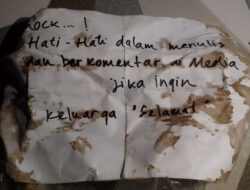 Rock....!
Hati-Hati dalam menulis
dan berkomentar di Medsa
jika ingin
keluarga "Selamat"